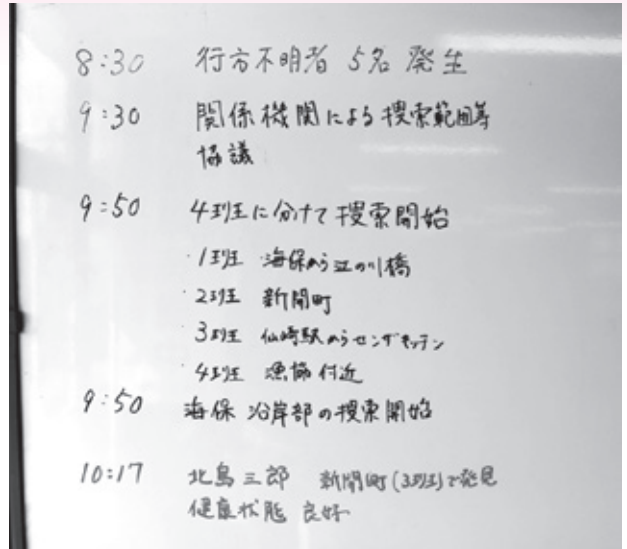 8:30 行方不明者 5名 発生
9:30 関係機関による捜索範囲等
協議
9:50 4班に分けて捜索開始
・1班 海保から江の川橋
・2班 新開町
・3班 仙崎駅からセンザキッチン
・4班 漁協付近
9:50 海保 沿岸部の捜索開始
10:17 北島三郎 新開町(3班)で発見
健康状態 良好